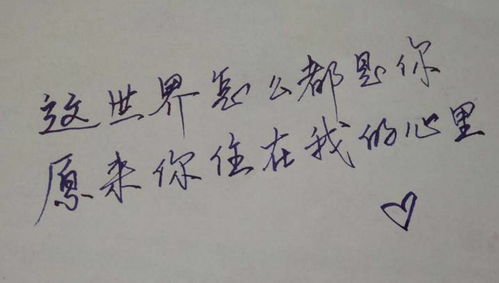 这世界怎么都是你
原来你住在我的心里